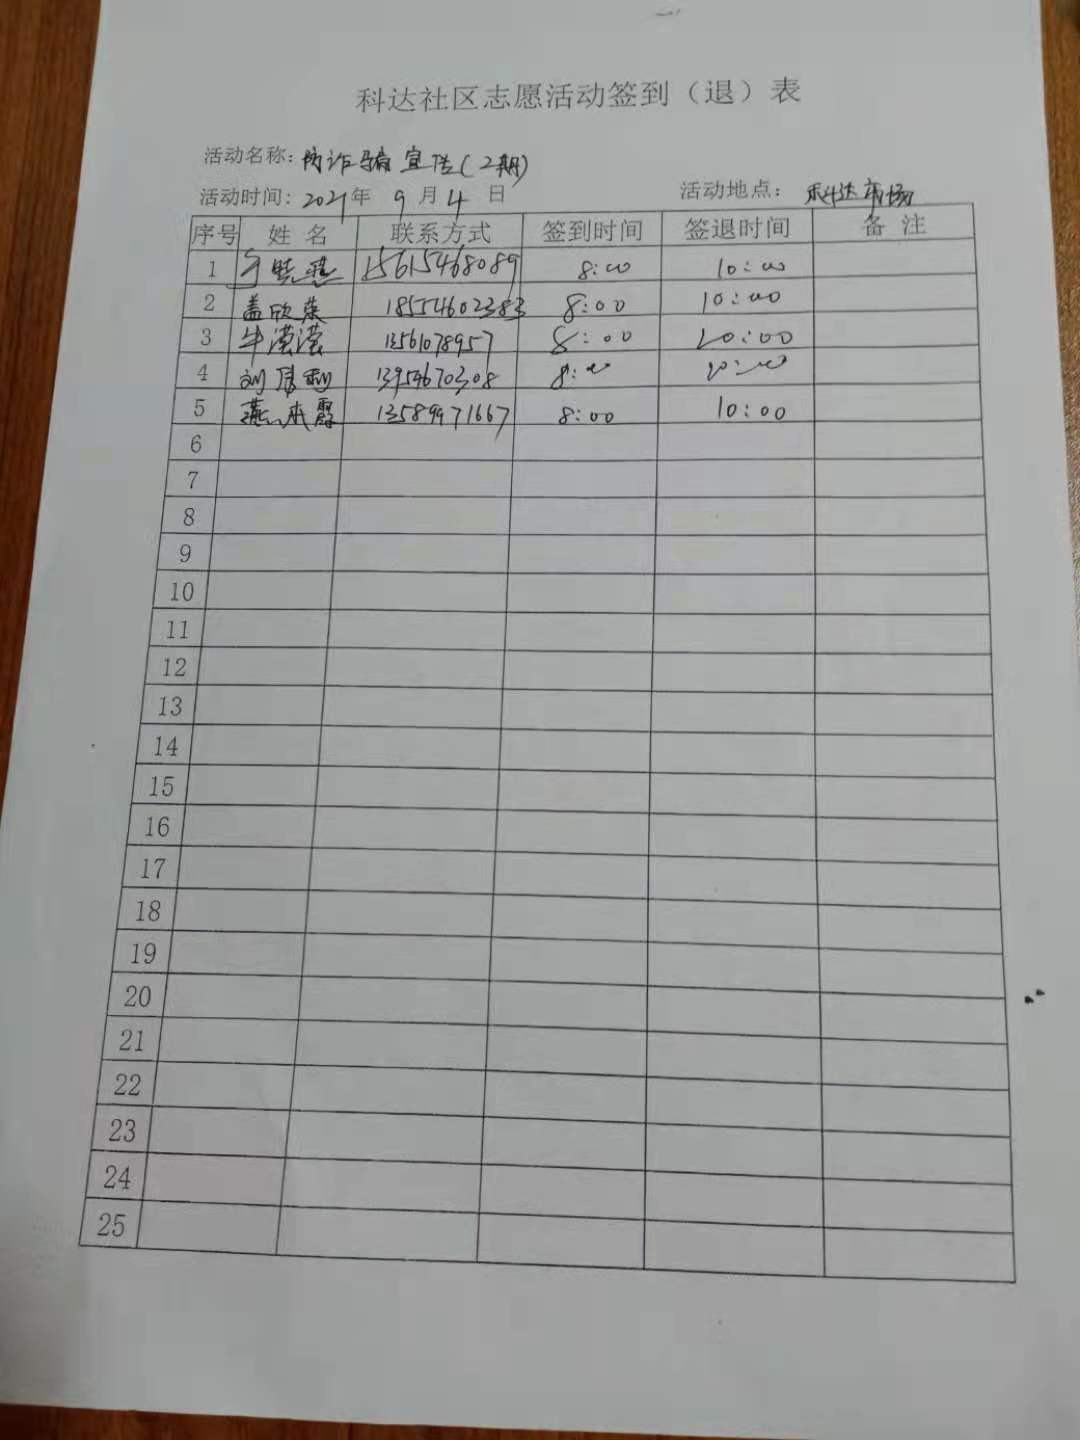 科达社区志愿活动签到（退）表
活动名称：防诈骗宣传（2期）
活动时间：2021年 9月4日 活动地点：科达市场
序号 姓名 联系方式 签到时间 签退时间 备注
1 15615468089 8:00 10:00
2 盖欣荣 18554602383 8:00 10:00
3 牛滢滢 13561078957 8:00 10:00
4 刘 13954670308 8:00 10:00
5 燕 霞 13589971667 8:00 10:00
6
7
8
9
10
11
12
13
14
15
16
17
18
19
20
21
22
23
24
25